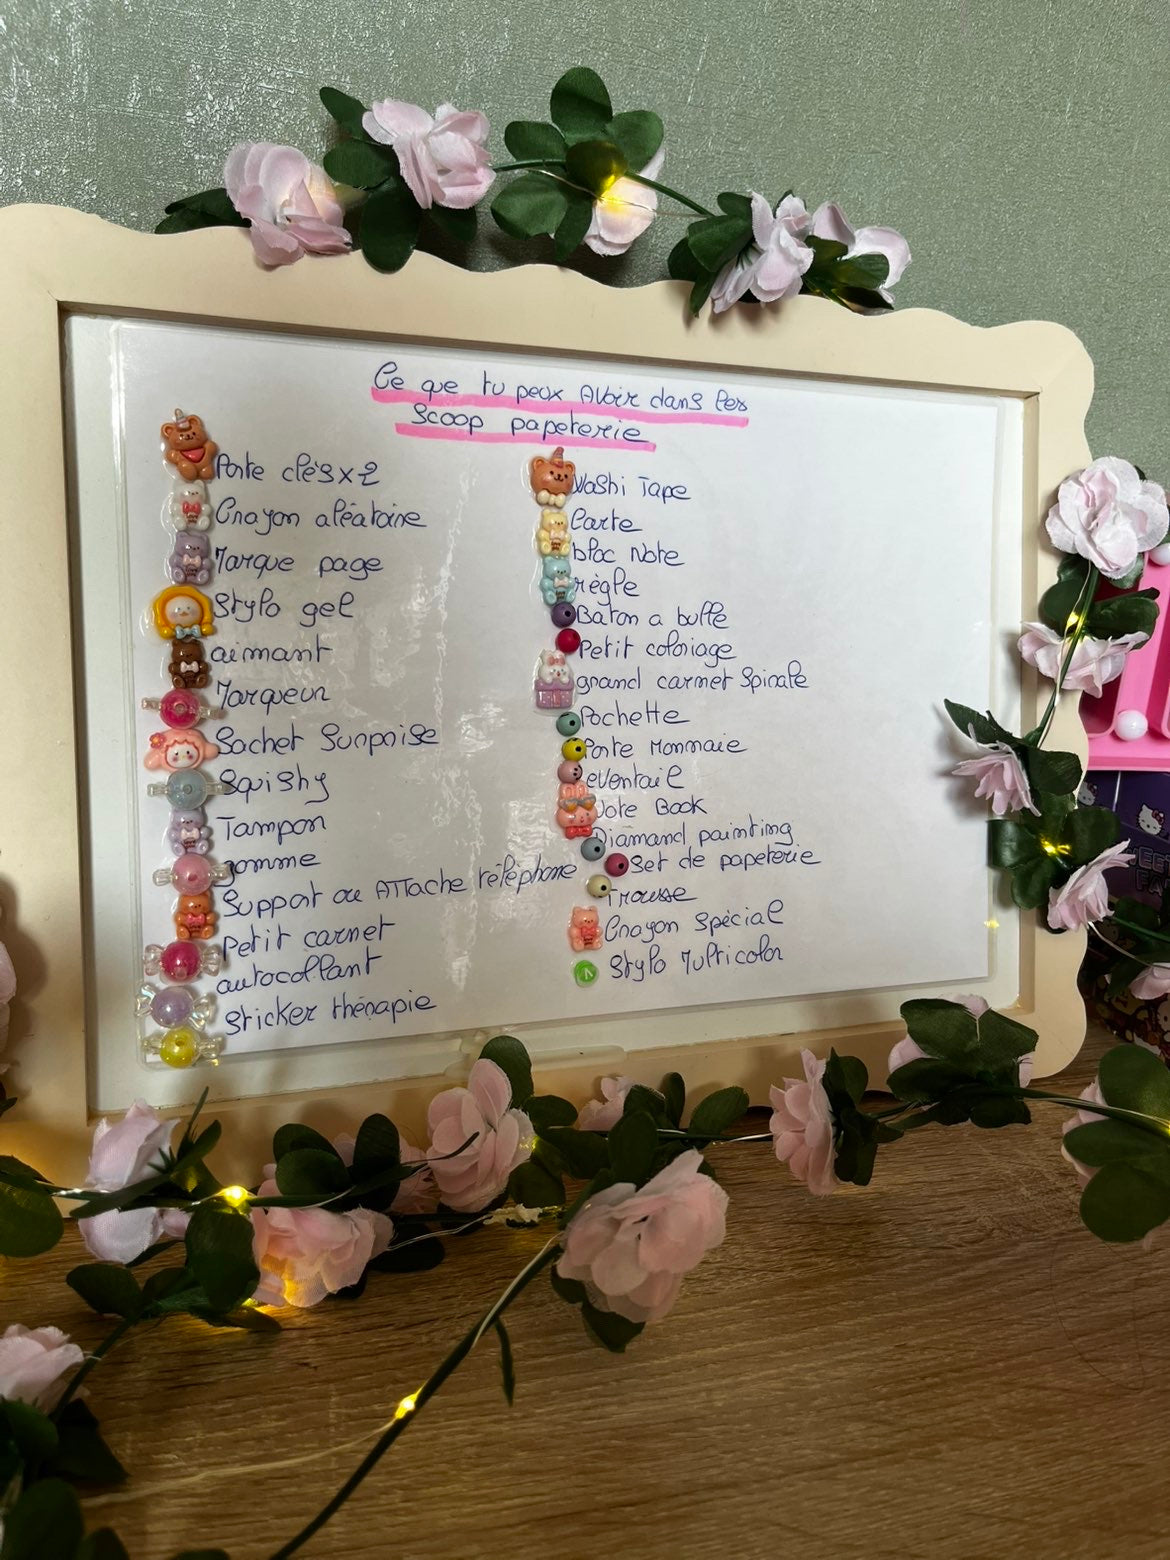 Ce que tu peux Avoir dans les
Scoop papeterie
Porte clés x 2
Crayon aléatoire
Marque page
Stylo gel
aimant
Marqueur
Sachet Surprise
Squishy
Tampon
gomme
Support ou Attache téléphone
petit carnet
autocollant
sticker thérapie
Washi Tape
Carte
bloc Note
règle
Baton a bulle
Petit coloriage
grand carnet Spirale
Pochette
Porte Monnaie
eventail
Note Book
Diamand painting
Set de papeterie
Trousse
Crayon Spécial
Stylo Multicolor